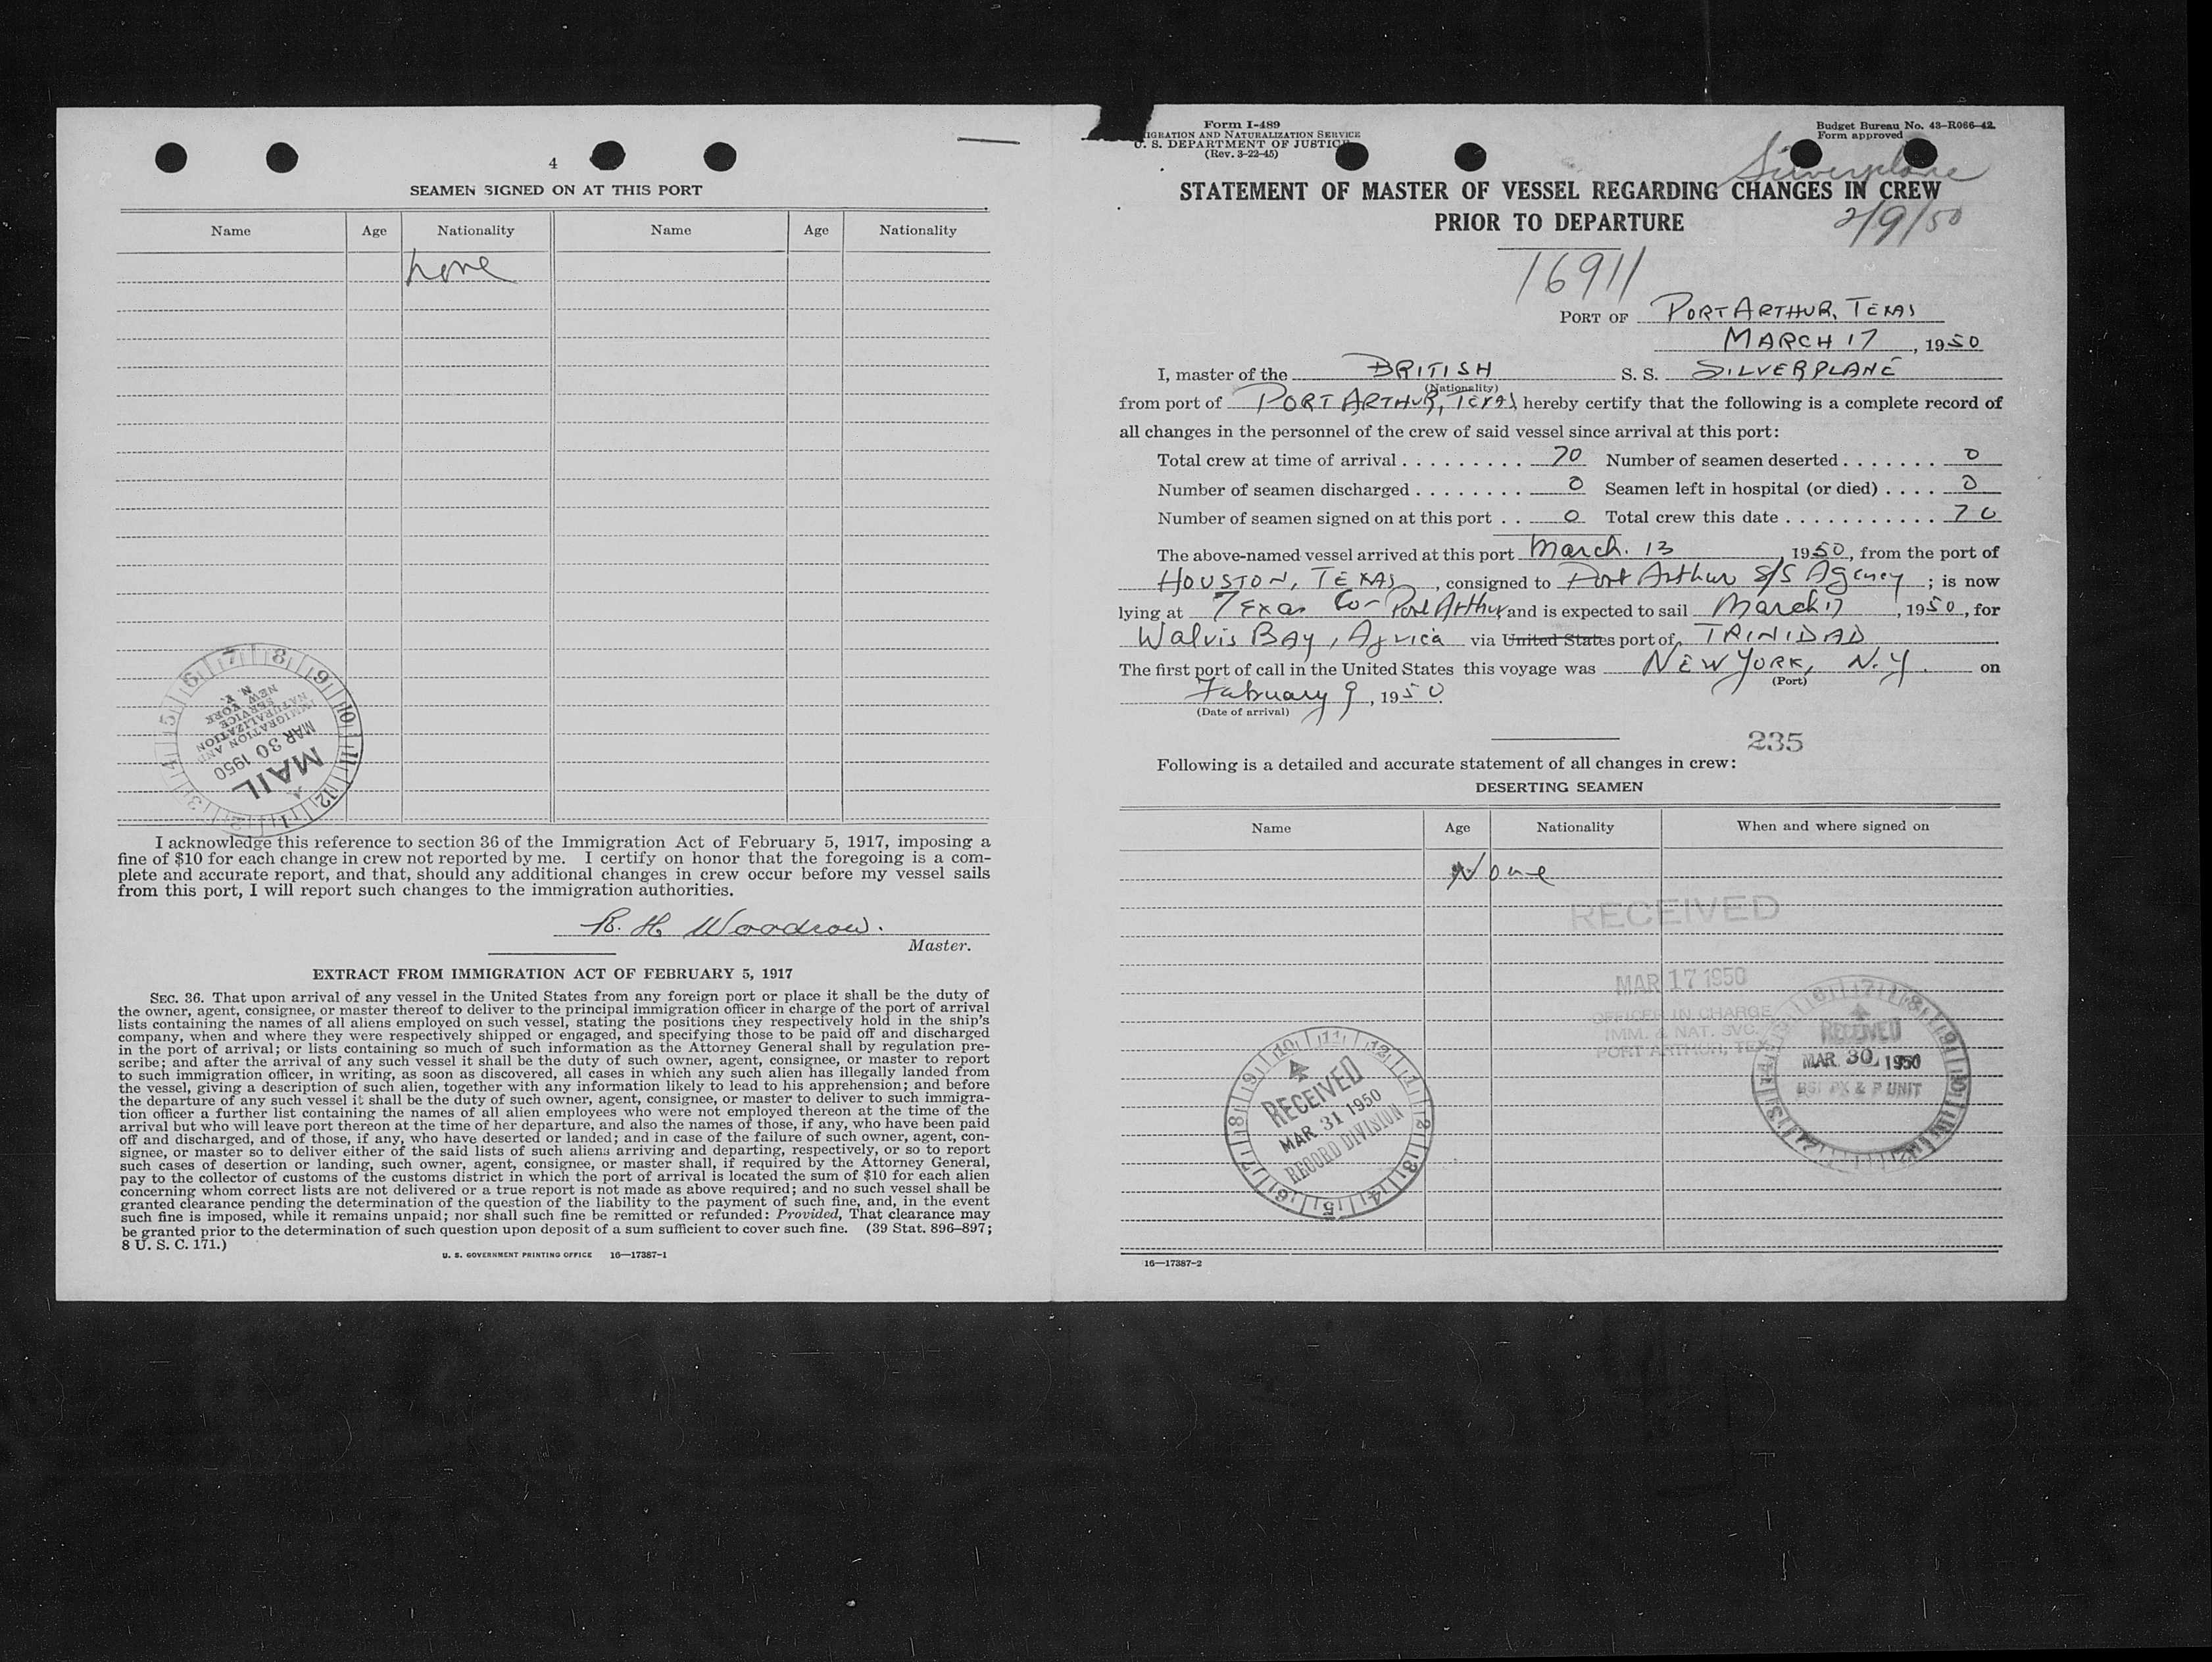 4
SEAMEN SIGNED ON AT THIS PORT
Name Age Nationality Name Age Nationality
none
MAIL
MAR 30 1950
IMMIGRATION AND
NATURALIZATION
SERVICE
NEW YORK
N. Y.
I acknowledge this reference to section 36 of the Immigration Act of February 5, 1917, imposing a
fine of $10 for each change in crew not reported by me. I certify on honor that the foregoing is a com-
plete and accurate report, and that, should any additional changes in crew occur before my vessel sails
from this port, I will report such changes to the immigration authorities.
R. H. Woodrow.
Master.
EXTRACT FROM IMMIGRATION ACT OF FEBRUARY 5, 1917
SEC. 36. That upon arrival of any vessel in the United States from any foreign port or place it shall be the duty of
the owner, agent, consignee, or master thereof to deliver to the principal immigration officer in charge of the port of arrival
lists containing the names of all aliens employed on such vessel, stating the positions they respectively hold in the ship's
company, when and where they were respectively shipped or engaged, and specifying those to be paid off and discharged
in the port of arrival; or lists containing so much of such information as the Attorney General shall by regulation pre-
scribe; and after the arrival of any such vessel it shall be the duty of such owner, agent, consignee, or master to report
to such immigration officer, in writing, as soon as discovered, all cases in which any such alien has illegally landed from
the vessel, giving a description of such alien, together with any information likely to lead to his apprehension; and before
the departure of any such vessel it shall be the duty of such owner, agent, consignee, or master to deliver to such immigra-
tion officer a further list containing the names of all alien employees who were not employed thereon at the time of the
arrival but who will leave port thereon at the time of her departure, and also the names of those, if any, who have been paid
off and discharged, and of those, if any, who have deserted or landed; and in case of the failure of such owner, agent, con-
signee, or master so to deliver either of the said lists of such aliens arriving and departing, respectively, or so to report
such cases of desertion or landing, such owner, agent, consignee, or master shall, if required by the Attorney General,
pay to the collector of customs of the customs district in which the port of arrival is located the sum of $10 for each alien
concerning whom correct lists are not delivered or a true report is not made as above required; and no such vessel shall be
granted clearance pending the determination of the question of the liability to the payment of such fine, and, in the event
such fine is imposed, while it remains unpaid; nor shall such fine be remitted or refunded: Provided, That clearance may
be granted prior to the determination of such question upon deposit of a sum sufficient to cover such fine. (39 Stat. 896–897;
8 U. S. C. 171.)
U. S. GOVERNMENT PRINTING OFFICE 16—17387-1
Form I-489
IGRATION AND NATURALIZATION SERVICE
U. S. DEPARTMENT OF JUSTICE
(Rev. 3-22-45)
Budget Bureau No. 43-R066-42.
Form approved
Silverplane
STATEMENT OF MASTER OF VESSEL REGARDING CHANGES IN CREW
PRIOR TO DEPARTURE
2/9/50
16911
PORT OF PORT ARTHUR, TEXAS
MARCH 17, 1950
I, master of the BRITISH S. S. SILVERPLANE
(Nationality)
from port of PORT ARTHUR, TEXAS hereby certify that the following is a complete record of
all changes in the personnel of the crew of said vessel since arrival at this port:
Total crew at time of arrival . . . . . . . . . . 70 Number of seamen deserted . . . . . . . 0
Number of seamen discharged . . . . . . . . 0 Seamen left in hospital (or died) . . . . 0
Number of seamen signed on at this port . . 0 Total crew this date . . . . . . . . . . . . 70
The above-named vessel arrived at this port March. 13, 1950, from the port of
HOUSTON, TEXAS, consigned to Port Arthur S/S Agency; is now
lying at Texas Co - Port Arthur and is expected to sail March 17, 1950, for
Walvis BAY, Africa via United States port of TRINIDAD
The first port of call in the United States this voyage was NEW YORK, N.Y. on
(Port)
February 9, 1950.
(Date of arrival)
235
Following is a detailed and accurate statement of all changes in crew:
DESERTING SEAMEN
Name Age Nationality When and where signed on
None
RECEIVED
MAR 17 1950
OFFICER IN CHARGE
IMM. & NAT. SVC.
PORT ARTHUR, TEX.
RECEIVED
MAR 30 1950
BSI PX & P UNIT
RECEIVED
MAR 31 1950
RECORD DIVISION
16—17387-2